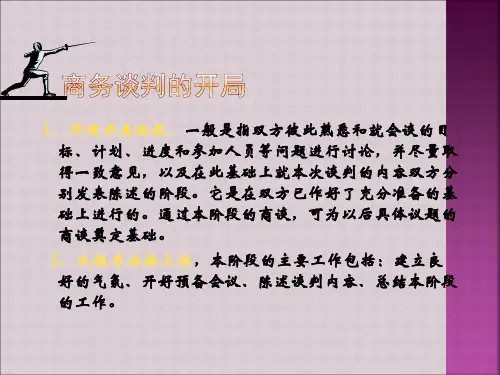 商务谈判的开局
1、所谓开局阶段,一般是指双方彼此熟悉和就会谈的目
标、计划、进度和参加人员等问题进行讨论,并尽量取
得一致意见,以及在此基础上就本次谈判的内容双方分
别发表陈述的阶段。它是在双方已作好了充分准备的基
础上进行的。通过本阶段的商谈,可为以后具体议题的
商谈奠定基础。
2、,本阶段的主要工作包括:建立良
好的气氛、开好预备会议、陈述谈判内容、总结本阶段
的工作。